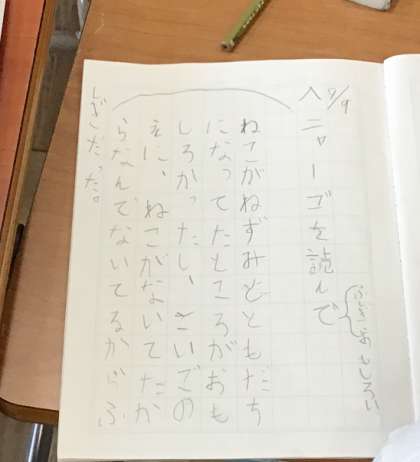 9/9
ヘニャーゴを読んで
ふしぎ おもしろい
ねこがねずみとともだち
になってたところがおも
しろかったし、さいごの
えに、ねこがないてたか
らなんでないてるからふ
しぎだった。